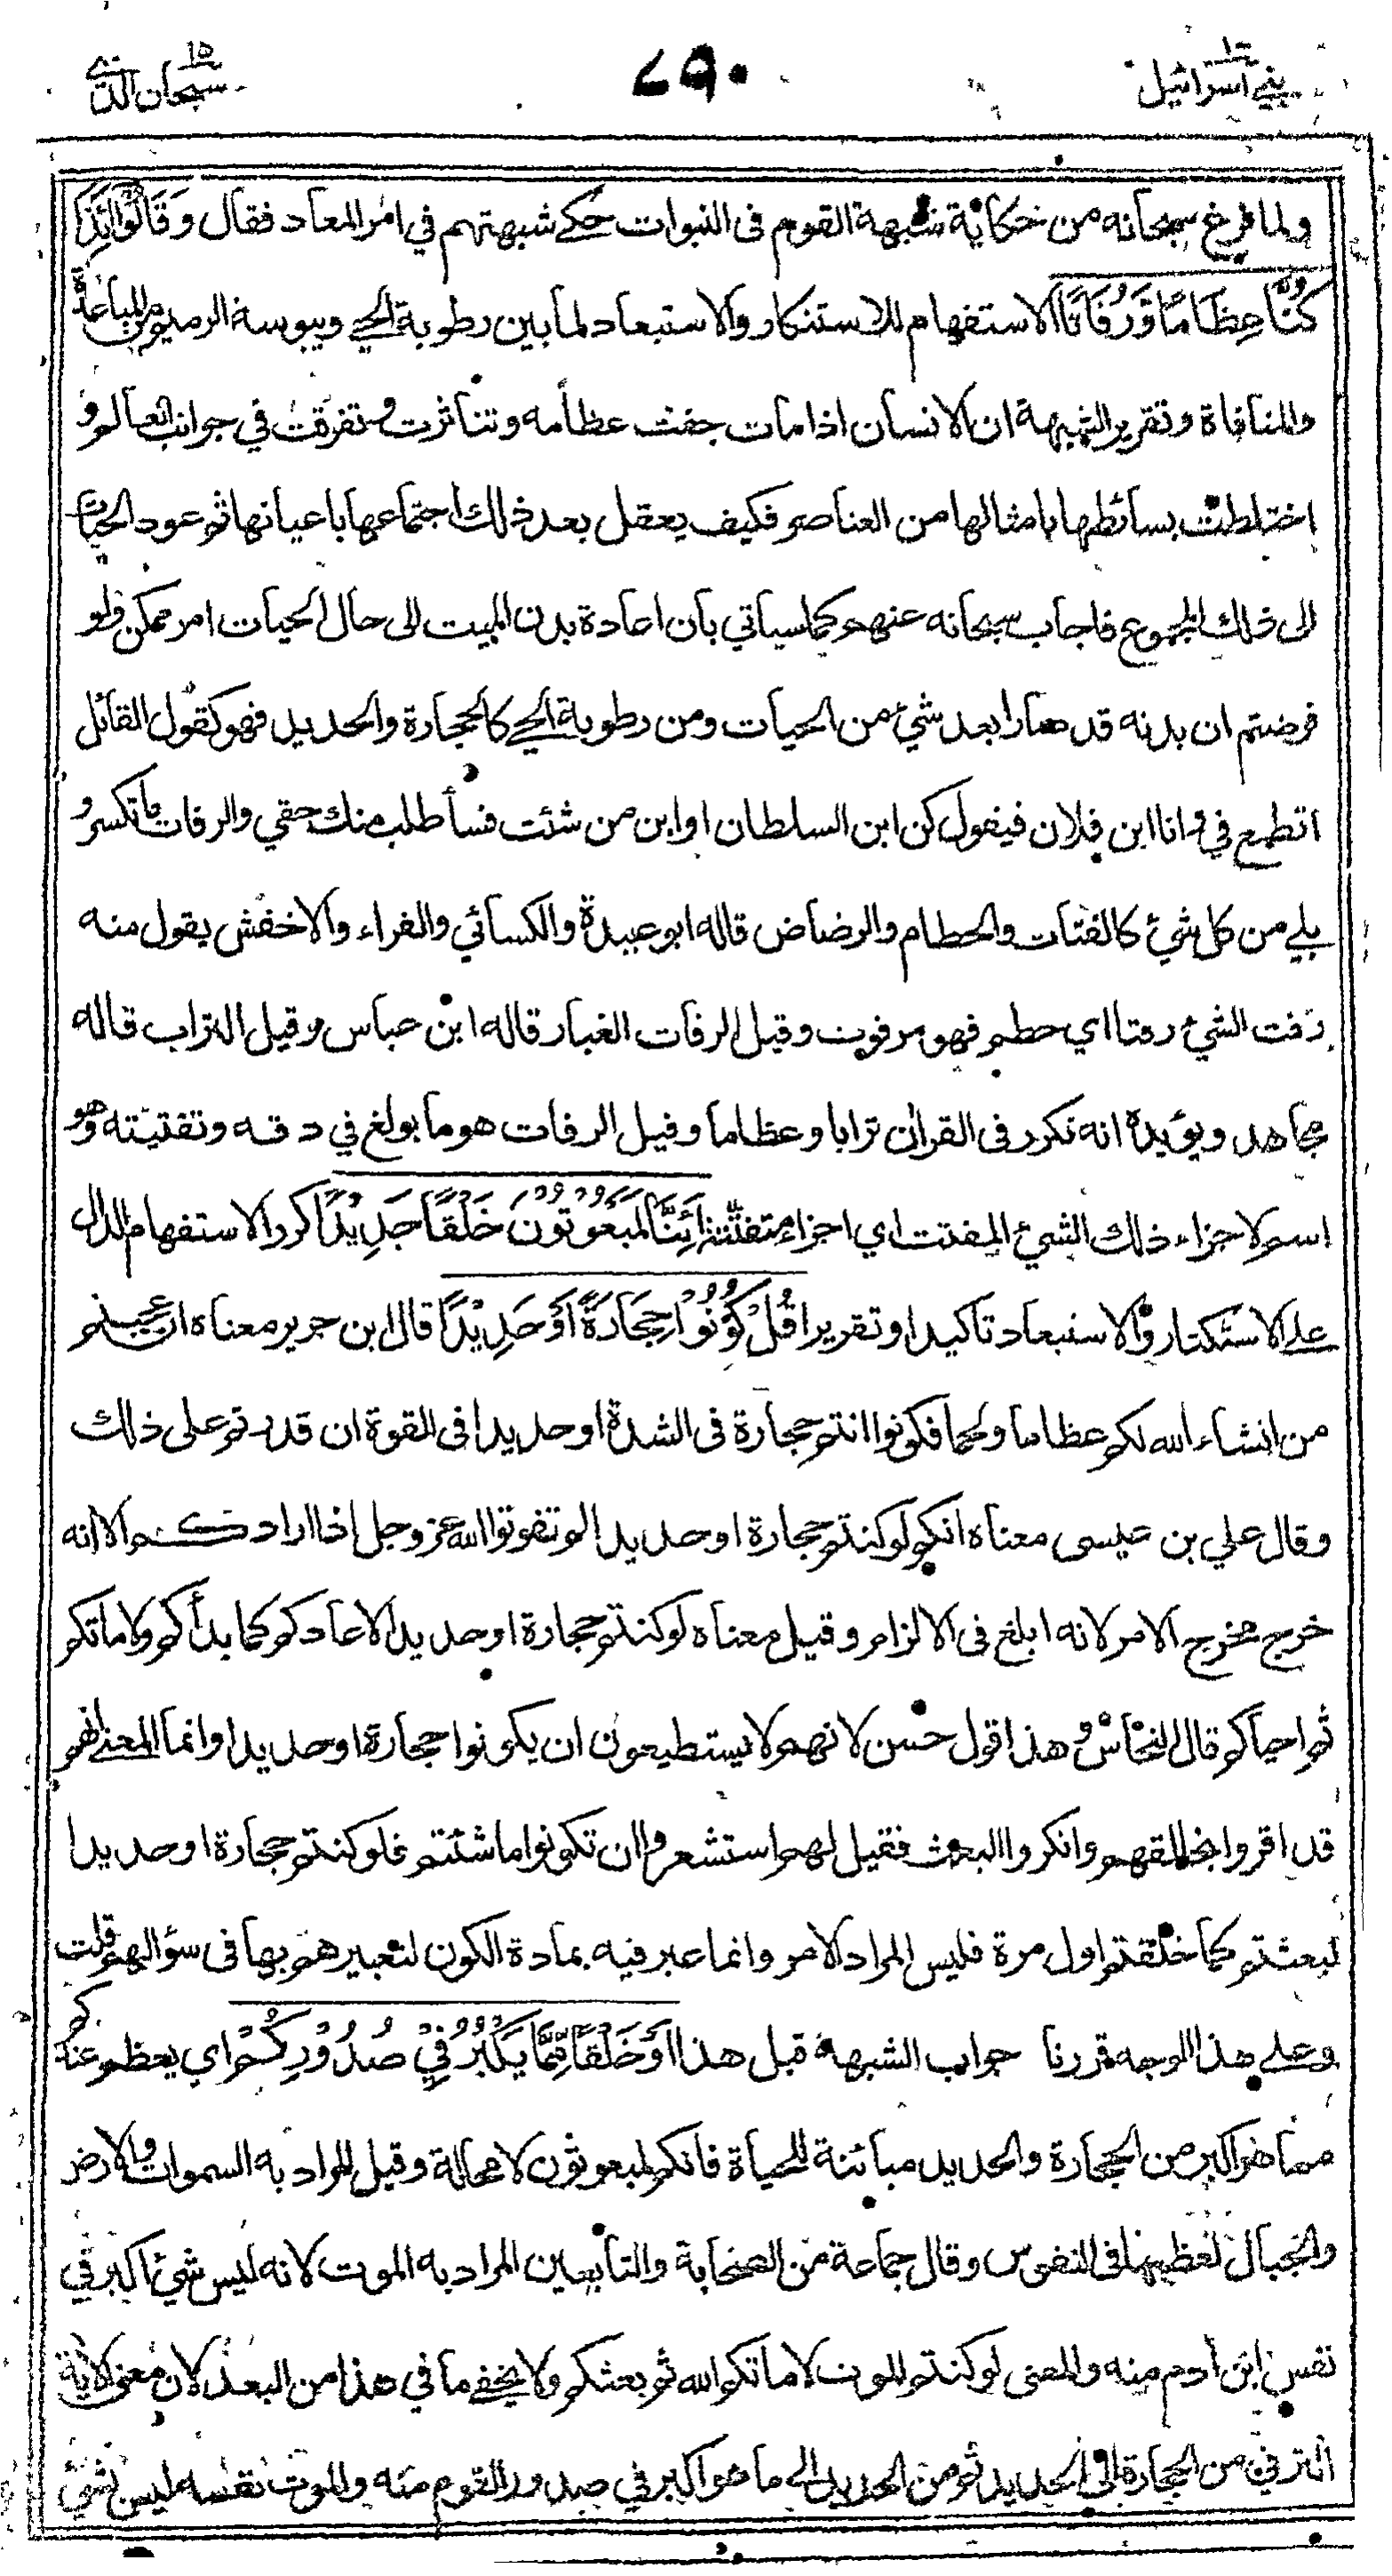 بني اسرائيل ١٧
٧٩٠
سبحان الذي ١٥
ولما فرغ سبحانه من حكاية شبهة القوم فى النبوات حكى شبهتهم في امر المعاد فقال وَقَالُوْا ائِذَا
كُنَّا عِظَامًا وَّرُفَاتًا الاستفهام للاستنكار والاستبعاد لما بين رطوبة الحي ويبوسة الرميم من المباعدة
والمنافاة وتقرير الشبهة ان الانسان اذا مات جفت عظامه وتناثرت وتفرقت في جوانب العالم و
اختلطت بسائطها بامثالها من العناصر فكيف يعقل بعد ذلك اجتماعها باعيانها ثم عود الحيات
الى ذلك المجموع فاجاب سبحانه عنهم كما سياتي بان اعادة بدن الميت الى حال الحيات امر ممكن ولو
فرضتم ان بدنه قد صار ابعد شيء من الحيات ومن رطوبة الحي كالحجارة والحديد فهو كقول القائل
اتطمع في وانا ابن فلان فيقول كن ابن السلطان او ابن من شئت فسأطلب منك حقي والرفات ما تكسر و
بلي من كل شيء كالفتات والحطام والرضاض قاله ابو عبيدة والكسائي والفراء والاخفش يقول منه
رفت الشيء رفتا اي حطم فهو مرفوت وقيل الرفات الغبار قاله ابن عباس وقيل التراب قاله
مجاهد ويؤيده انه تكرر فى القران ترابا وعظاما وقيل الرفات هو ما بولغ في دقه وتفتيته وهو
اسم لاجزاء ذلك الشيء المفتت اي اجزاء متفتتة اَئِنَّا لَمَبْعُوْثُوْنَ خَلْقًا جَدِيْدًا كرر الاستفهام الدال
على الاستنكار والاستبعاد تاكيدا وتقريرا قُلْ كُوْنُوْا حِجَارَةً اَوْ حَدِيْدًا قال ابن جرير معناه ان عجبتم
من انشاء الله لكم عظاما ولحما فكونوا انتم حجارة فى الشدة او حديدا فى القوة ان قدرتم على ذلك
وقال علي بن عيسى معناه انكم لو كنتم حجارة او حديدا لم تفوتوا الله عز وجل اذا ارادكم الا انه
خرج مخرج الامر لانه ابلغ فى الالزام وقيل معناه لو كنتم حجارة او حديدا لاعادكم كما بدأكم ولاماتكم
ثم احياكم قال النحاس وهذا قول حسن لانهم لا يستطيعون ان يكونوا حجارة او حديدا وانما المعنى انهم
قد اقروا بخالقهم وانكروا البعث فقيل لهم استشعروا ان تكونوا ما شئتم فلو كنتم حجارة او حديدا
لبعثتم كما خلقتم اول مرة فليس المراد الامر وانما عبر فيه بمادة الكون لتعبيرهم بها فى سؤالهم قلت
وعلى هذا الوجه قررنا جواب الشبهة قبل هذا اَوْ خَلْقًا مِّمَّا يَكْبُرُ فِيْ صُدُوْرِكُمْ اي يعظم عندكم
مما هو اكبر من الحجارة والحديد مباينة للحياة فانكم لمبعوثون لا محالة وقيل المراد به السموات والارض
والجبال لعظمها فى النفوس وقال جماعة من الصحابة والتابعين المراد به الموت لانه ليس شيء اكبر في
نفس ابن آدم منه والمعنى لو كنتم الموت لاماتكم الله ثم بعثكم ولا يخفى ما في هذا من البعد لان معنى الاية
الترقي من الحجارة الى الحديد ثم من الحديد الى ما هو اكبر في صدور القوم منه والموت نفسه ليس بشيء